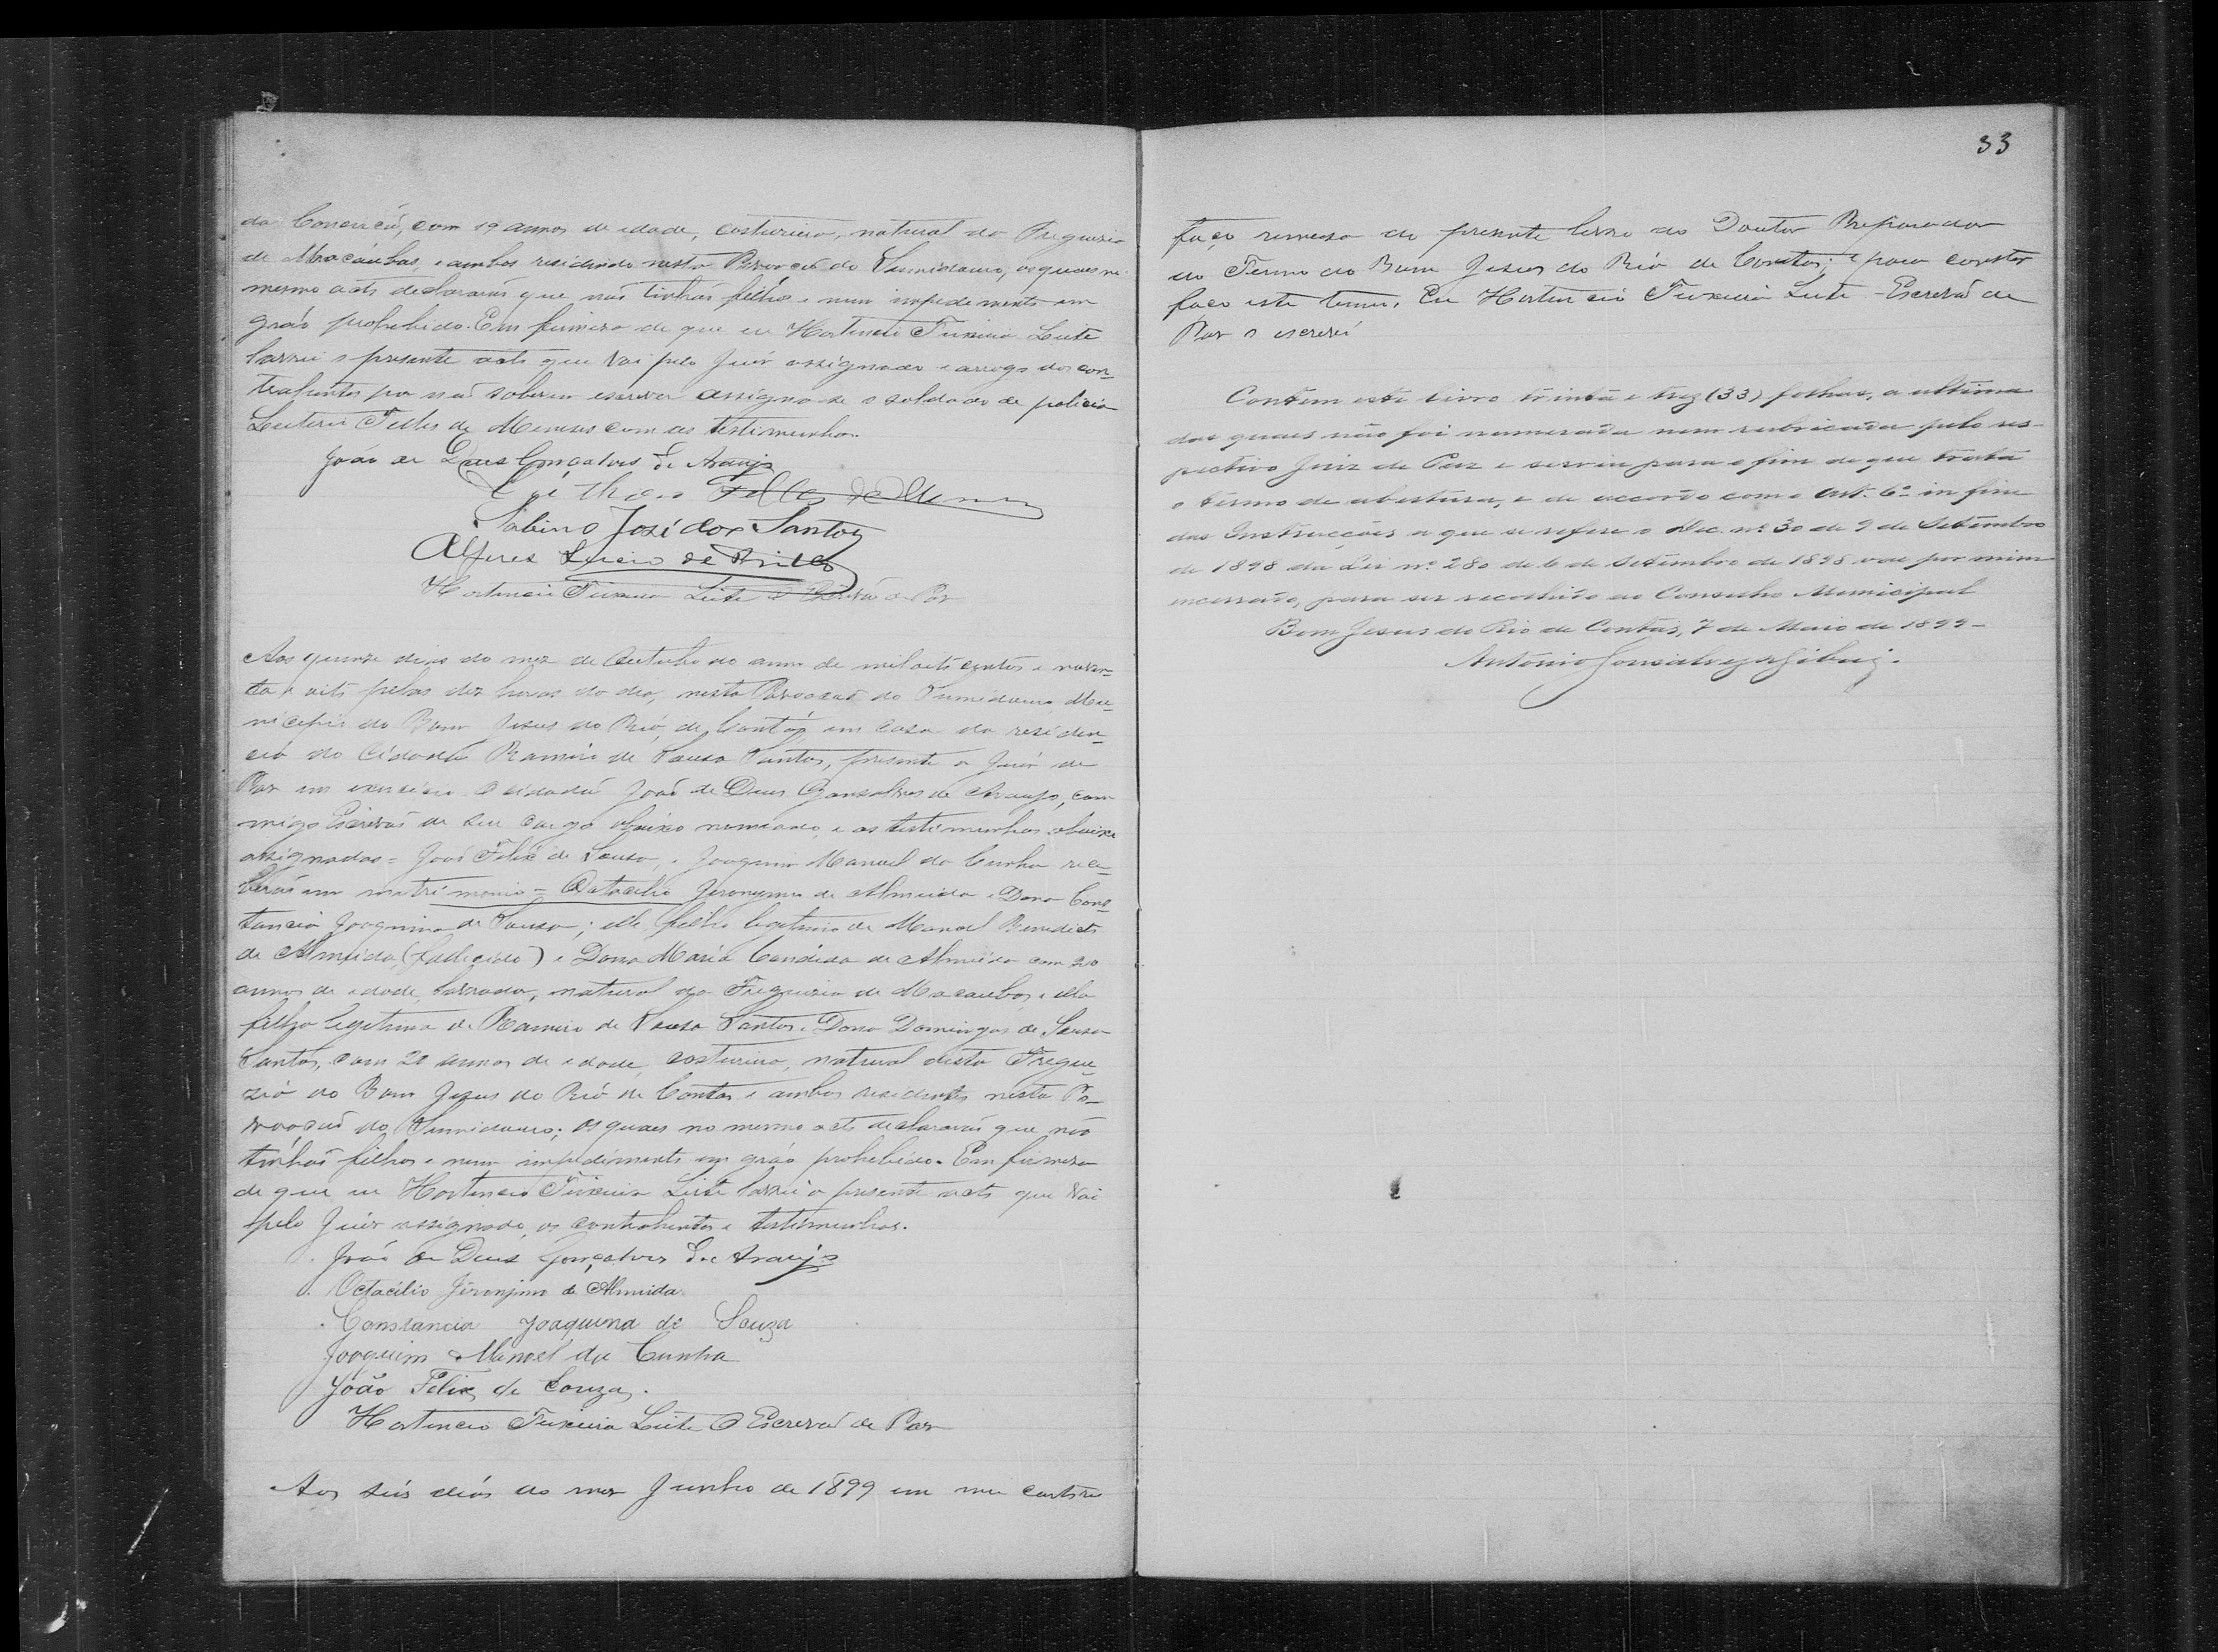 da Conceicá, com 19 annos de idade, costureira, natural da Freguezia
de Macaúbas, e ambos residindo nesta Povoacá do Sumidouro, os quaes no
mesmo acto declaravás que nás tinhás filhos e nem impedimento em
gráo prohebido. Em firmeza de que eu Hortencio Teixeira Leite
lavrei o presente acto que vai pelo Juiz assignado e arrogo dos con-
trahentes por naó saberem escrever assigno-se o soldado de policia
Leuterio Telles de Meneses com as testimunhas.
João de Deus Gonçalves de Araujo
Telles de Menezes
Sabino José dos Santos
Alferes Lucio de
Hortencio Teixeira Leite O Escrivá de Paz
Aos quinze dias do mez de Outubro do anno de mil oito centos e noven-
ta e oito pelas dez horas do dia, nesta Povoacaó do Sumidouro, Mu-
nicipio do Bom Jesus do Rio de Contas em casa da residen-
cia do Cidadá Ramiro de Souza Santos, presente o Juiz de
Paz em exercicio o cidadá Joaó de Deus Gonsalves de Araujo, com-
migo Escrivaó de seu cargo abaixo nomeado, e as testimunhas abaixo
assignadas = Joaó Felix de Souza, e Joaquim Manoel da Cunha rece-
beraó em matrimonio = Octacilio Jeronymo de Almeida e Dona Cons-
tancia Joaquina de Souza; elle filho legitimo de Manoel Benedicto
de Almeida (fallecido) e Dona Maria Candida de Almeida com 20
annos de idade, lavrador, natural da Freguezia de Macaubas, e ella
filha legitima de Ramiro de Souza Santos e Dona Domingas de Souza
Santos, com 20 annos de idade, costureira, natural desta Fregue-
zia do Bom Jesus do Rio de Contas e ambos residentes nesta Po-
voaçaó do Sumidouro; os quaes no mesmo acto declaravás que nao
tinhaó filhos e nem impedimento em gráo prohebido. Em firmeza
de que eu Hortencio Teixeira Leite lavrei o presente acto que vai
pelo Juiz assignado, os contrahentes e testimunhas.
João de Deus Gonçalves de Araujo
Octacilio Jeronjmo de Almeida
Constancia Joaquina de Souza
Joaquim Manoel da Cunha
João Felix de Souza.
Hortencio Teixeira Leite O Escrivaó de Paz
Aos seis dias do mez Junho de 1899 em meu cartorio
33
faço remessa do presente livro ao Doutor Preparador
do Termo do Bom Jesus do Rio de Contas; e para constar
faço este termo. Eu Hortencio Teixeira Leite - Escrivaó de
Paz o escrevi
Contem este livro trinta e trez (33) folhas, a ultima
das quaes não foi numerada nem rubricada pelo res-
pectivo Juiz de Paz e serviu para o fim de que trata
o termo de abertura, e de accordo com o Art. 6º in fine
das Instrucções a que se refere o Dec. nº 30 de 9 de Setembro
de 1898 da Lei nº 280 de 6 de Setembro de 1898 vae por mim
encerrado, para ser recolhido ao Conselho Municipal
Bom Jesus do Rio de Contas, 7 de Maio de 1899 -
Antonio Gonsalves